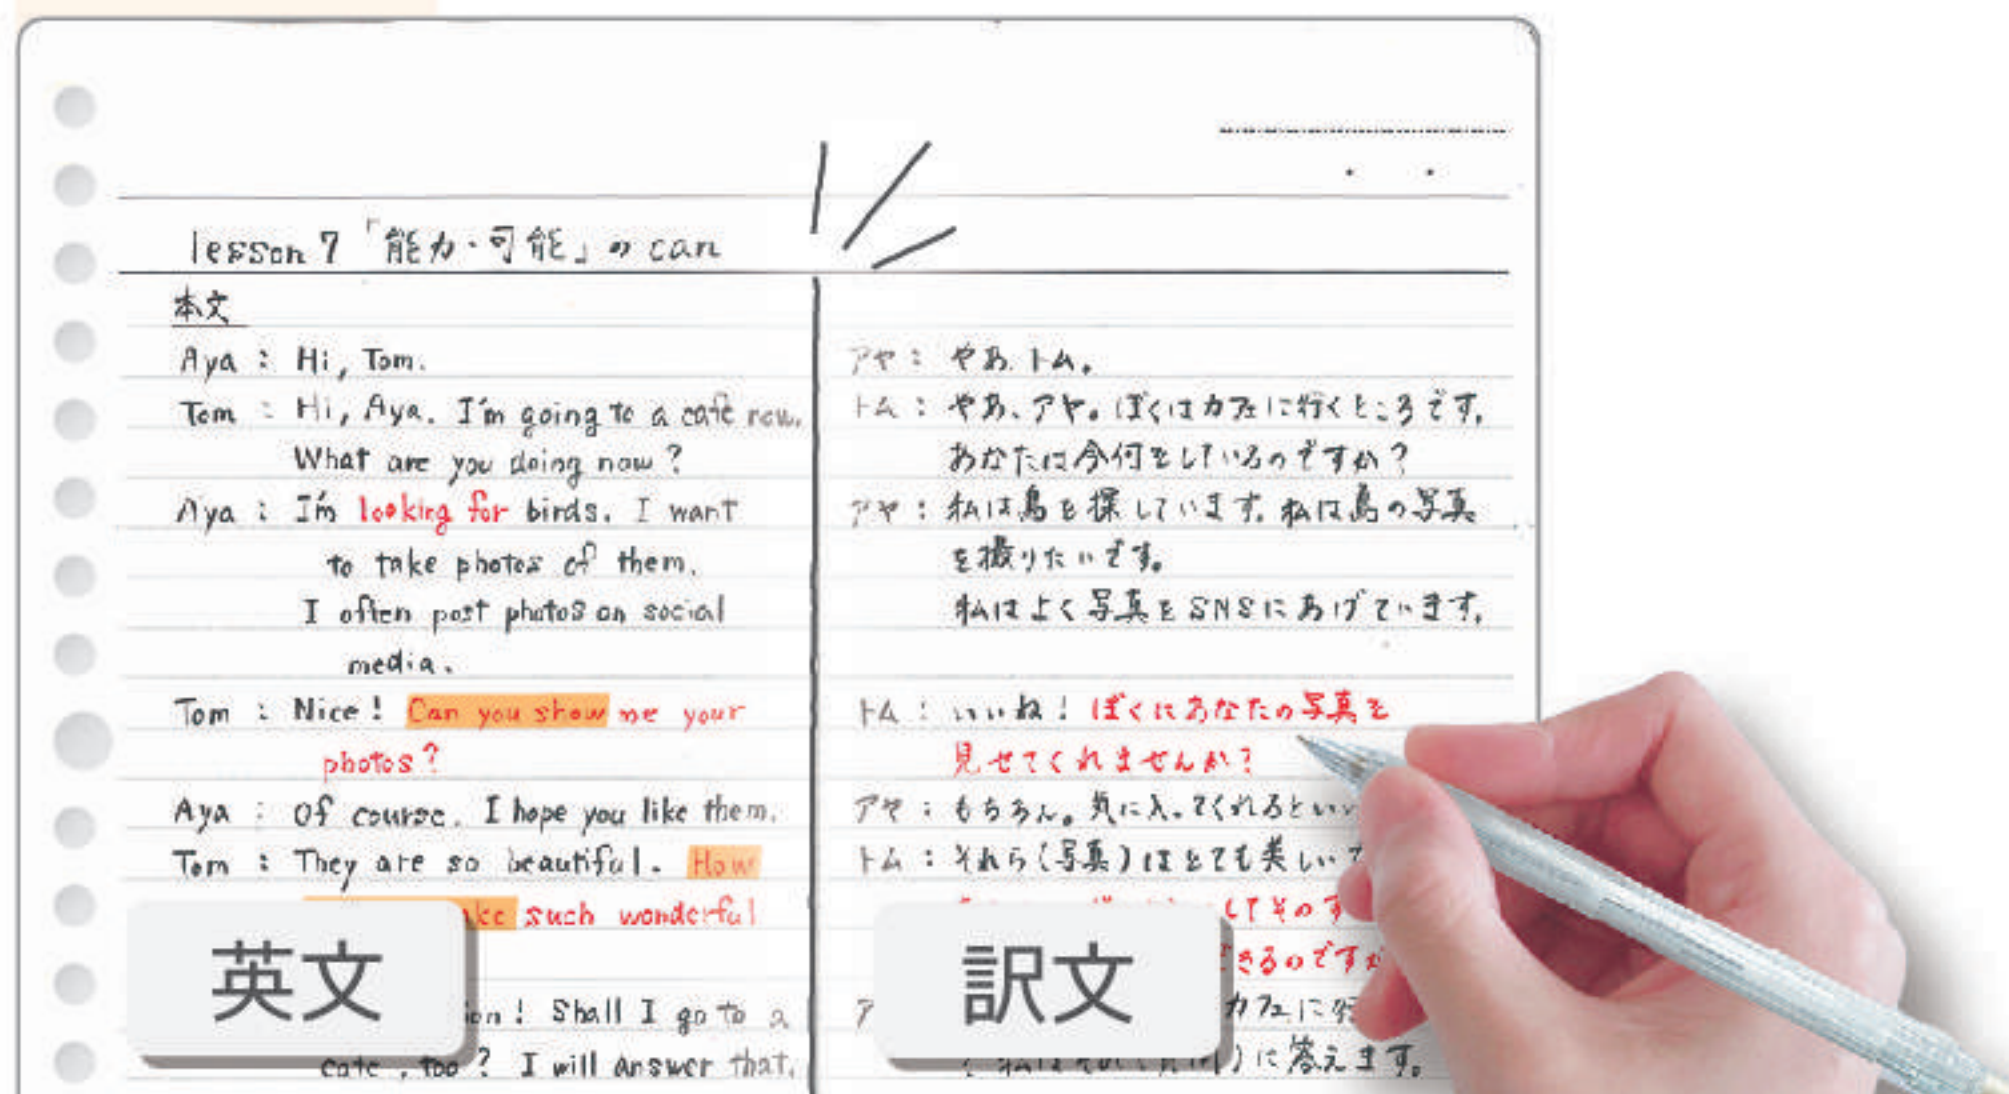 lesson 7 「能力・可能」の can
本文
Aya : Hi, Tom.
Tom : Hi, Aya. I'm going to a café now.
What are you doing now?
Aya : I'm looking for birds. I want
to take photos of them.
I often post photos on social
media.
Tom : Nice! Can you show me your
photos?
Aya : Of course. I hope you like them.
Tom : They are so beautiful. How
such wonderful
! Shall I go to a
cafe, too? I will answer that.
アヤ : やあ、トム。
トム : やあ、アヤ。ぼくはカフェに行くところです。
あなたは今何をしているのですか?
アヤ : 私は鳥を探しています。私は鳥の写真
を撮りたいです。
私はよく写真をSNSにあげています。
トム : いいね! ぼくにあなたの写真を
見せてくれませんか?
アヤ : もちろん。気に入ってくれるといい
トム : それら(写真)はとても美しい
してその
きるのですか
カフェに行
に答えます。
英文
訳文